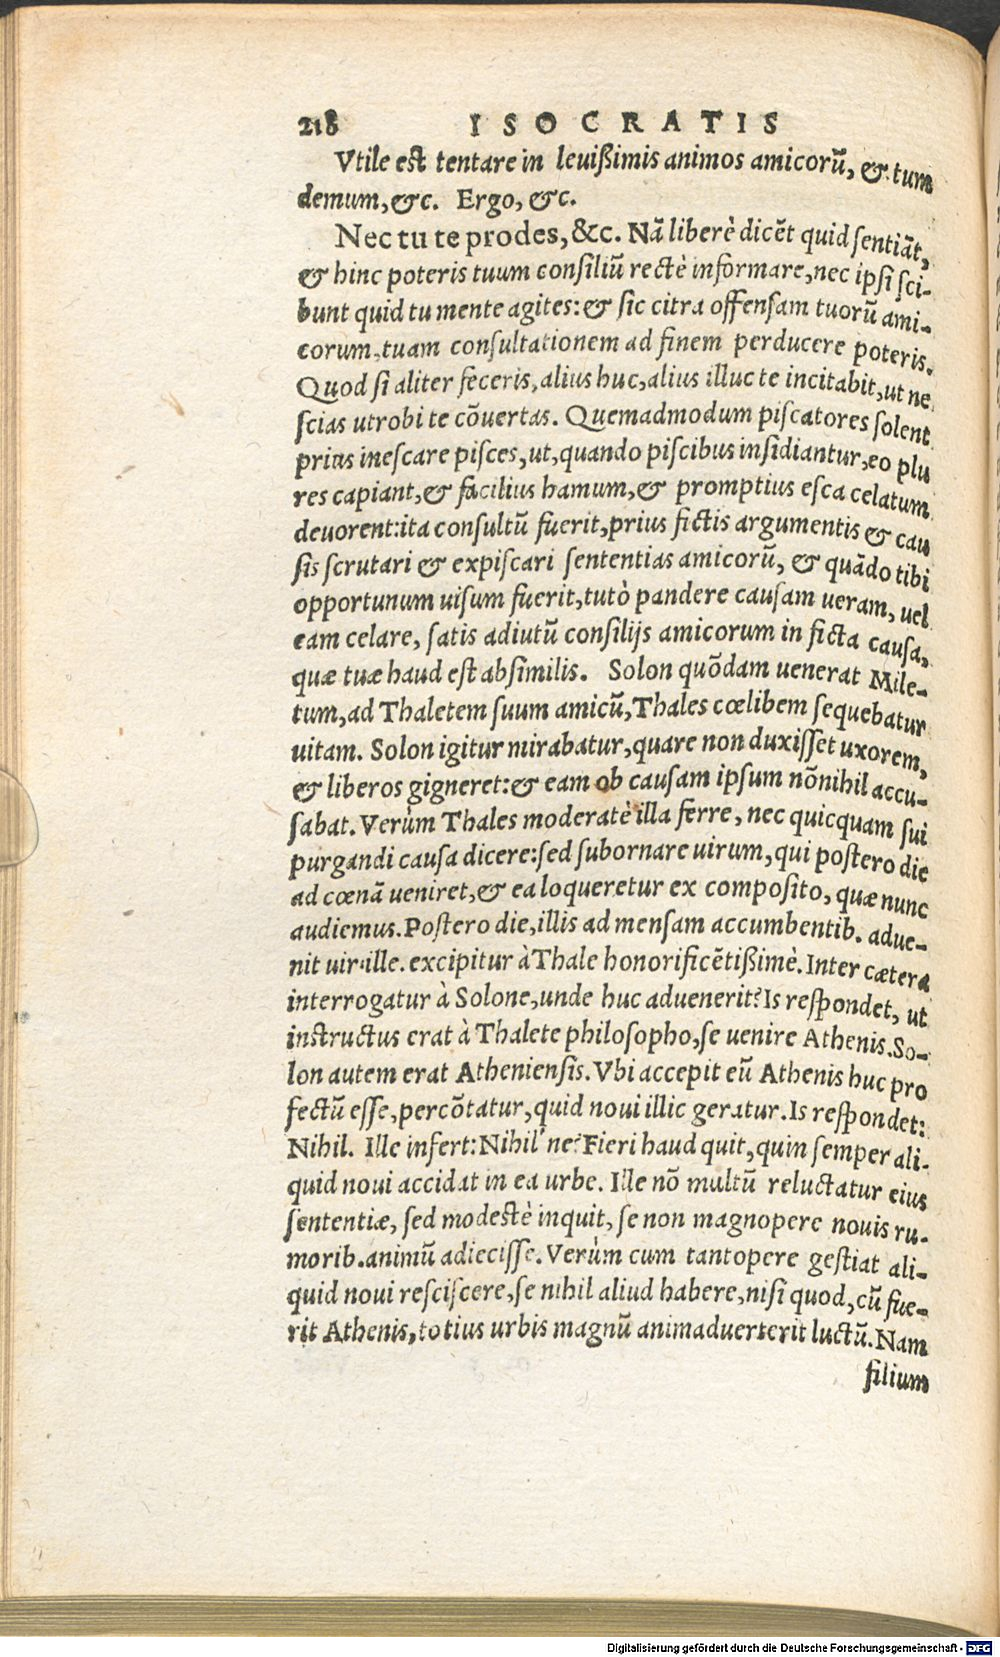 218 ISOCRATIS
Vtile est tentare in leuißimis animos amicorũ, & tum
demum, &c. Ergo, &c.
Nec tu te prodes, &c. Nã liberè dicẽt quid sentiãt,
& hinc poteris tuum consiliũ rectè informare, nec ipsi sci-
bunt quid tu mente agites: & sic citra offensam tuorũ ami-
corum, tuam consultationem ad finem perducere poteris.
Quod si aliter feceris, alius huc, alius illuc te incitabit, ut ne
scias utrobi te cõuertas. Quemadmodum piscatores solent
prius inescare pisces, ut, quando piscibus insidiantur, eo plu
res capiant, & facilius hamum, & promptius esca celatum
deuorent: ita consultũ fuerit, prius fictis argumentis & cau
sis scrutari & expiscari sententias amicorũ, & quãdo tibi
opportunum uisum fuerit, tutò pandere causam ueram, uel
eam celare, satis adiutũ consilijs amicorum in ficta causa,
quæ tuæ haud est absimilis. Solon quõdam uenerat Mile-
tum, ad Thaletem suum amicũ, Thales cœlibem sequebatur
uitam. Solon igitur mirabatur, quare non duxisset uxorem,
& liberos gigneret: & eam ob causam ipsum nõnihil accu-
sabat. Verùm Thales moderatè illa ferre, nec quicquam sui
purgandi causa dicere: sed subornare uirum, qui postero die
ad cœnã ueniret, & ea loqueretur ex composito, quæ nunc
audiemus. Postero die, illis ad mensam accumbentib. adue-
nit uir ille. excipitur à Thale honorificẽtißimè. Inter cætera
interrogatur à Solone, unde huc aduenerit? Is respondet, ut
instructus erat à Thalete philosopho, se uenire Athenis. So-
lon autem erat Atheniensis. Vbi accepit eũ Athenis huc pro
fectũ esse, percõtatur, quid noui illic geratur. Is respondet:
Nihil. Ille infert: Nihil'ne? Fieri haud quit, quin semper ali-
quid noui accidat in ea urbe. Ille nõ multũ reluctatur eius
sententiæ, sed modestè inquit, se non magnopere nouis ru-
morib. animũ adiecisse. Verùm cum tantopere gestiat ali-
quid noui resciscere, se nihil aliud habere, nisi quod, cũ fue-
rit Athenis, totius urbis magnũ animaduerterit luctũ. Nam
filium
Digitalisierung gefördert durch die Deutsche Forschungsgemeinschaft - DFG